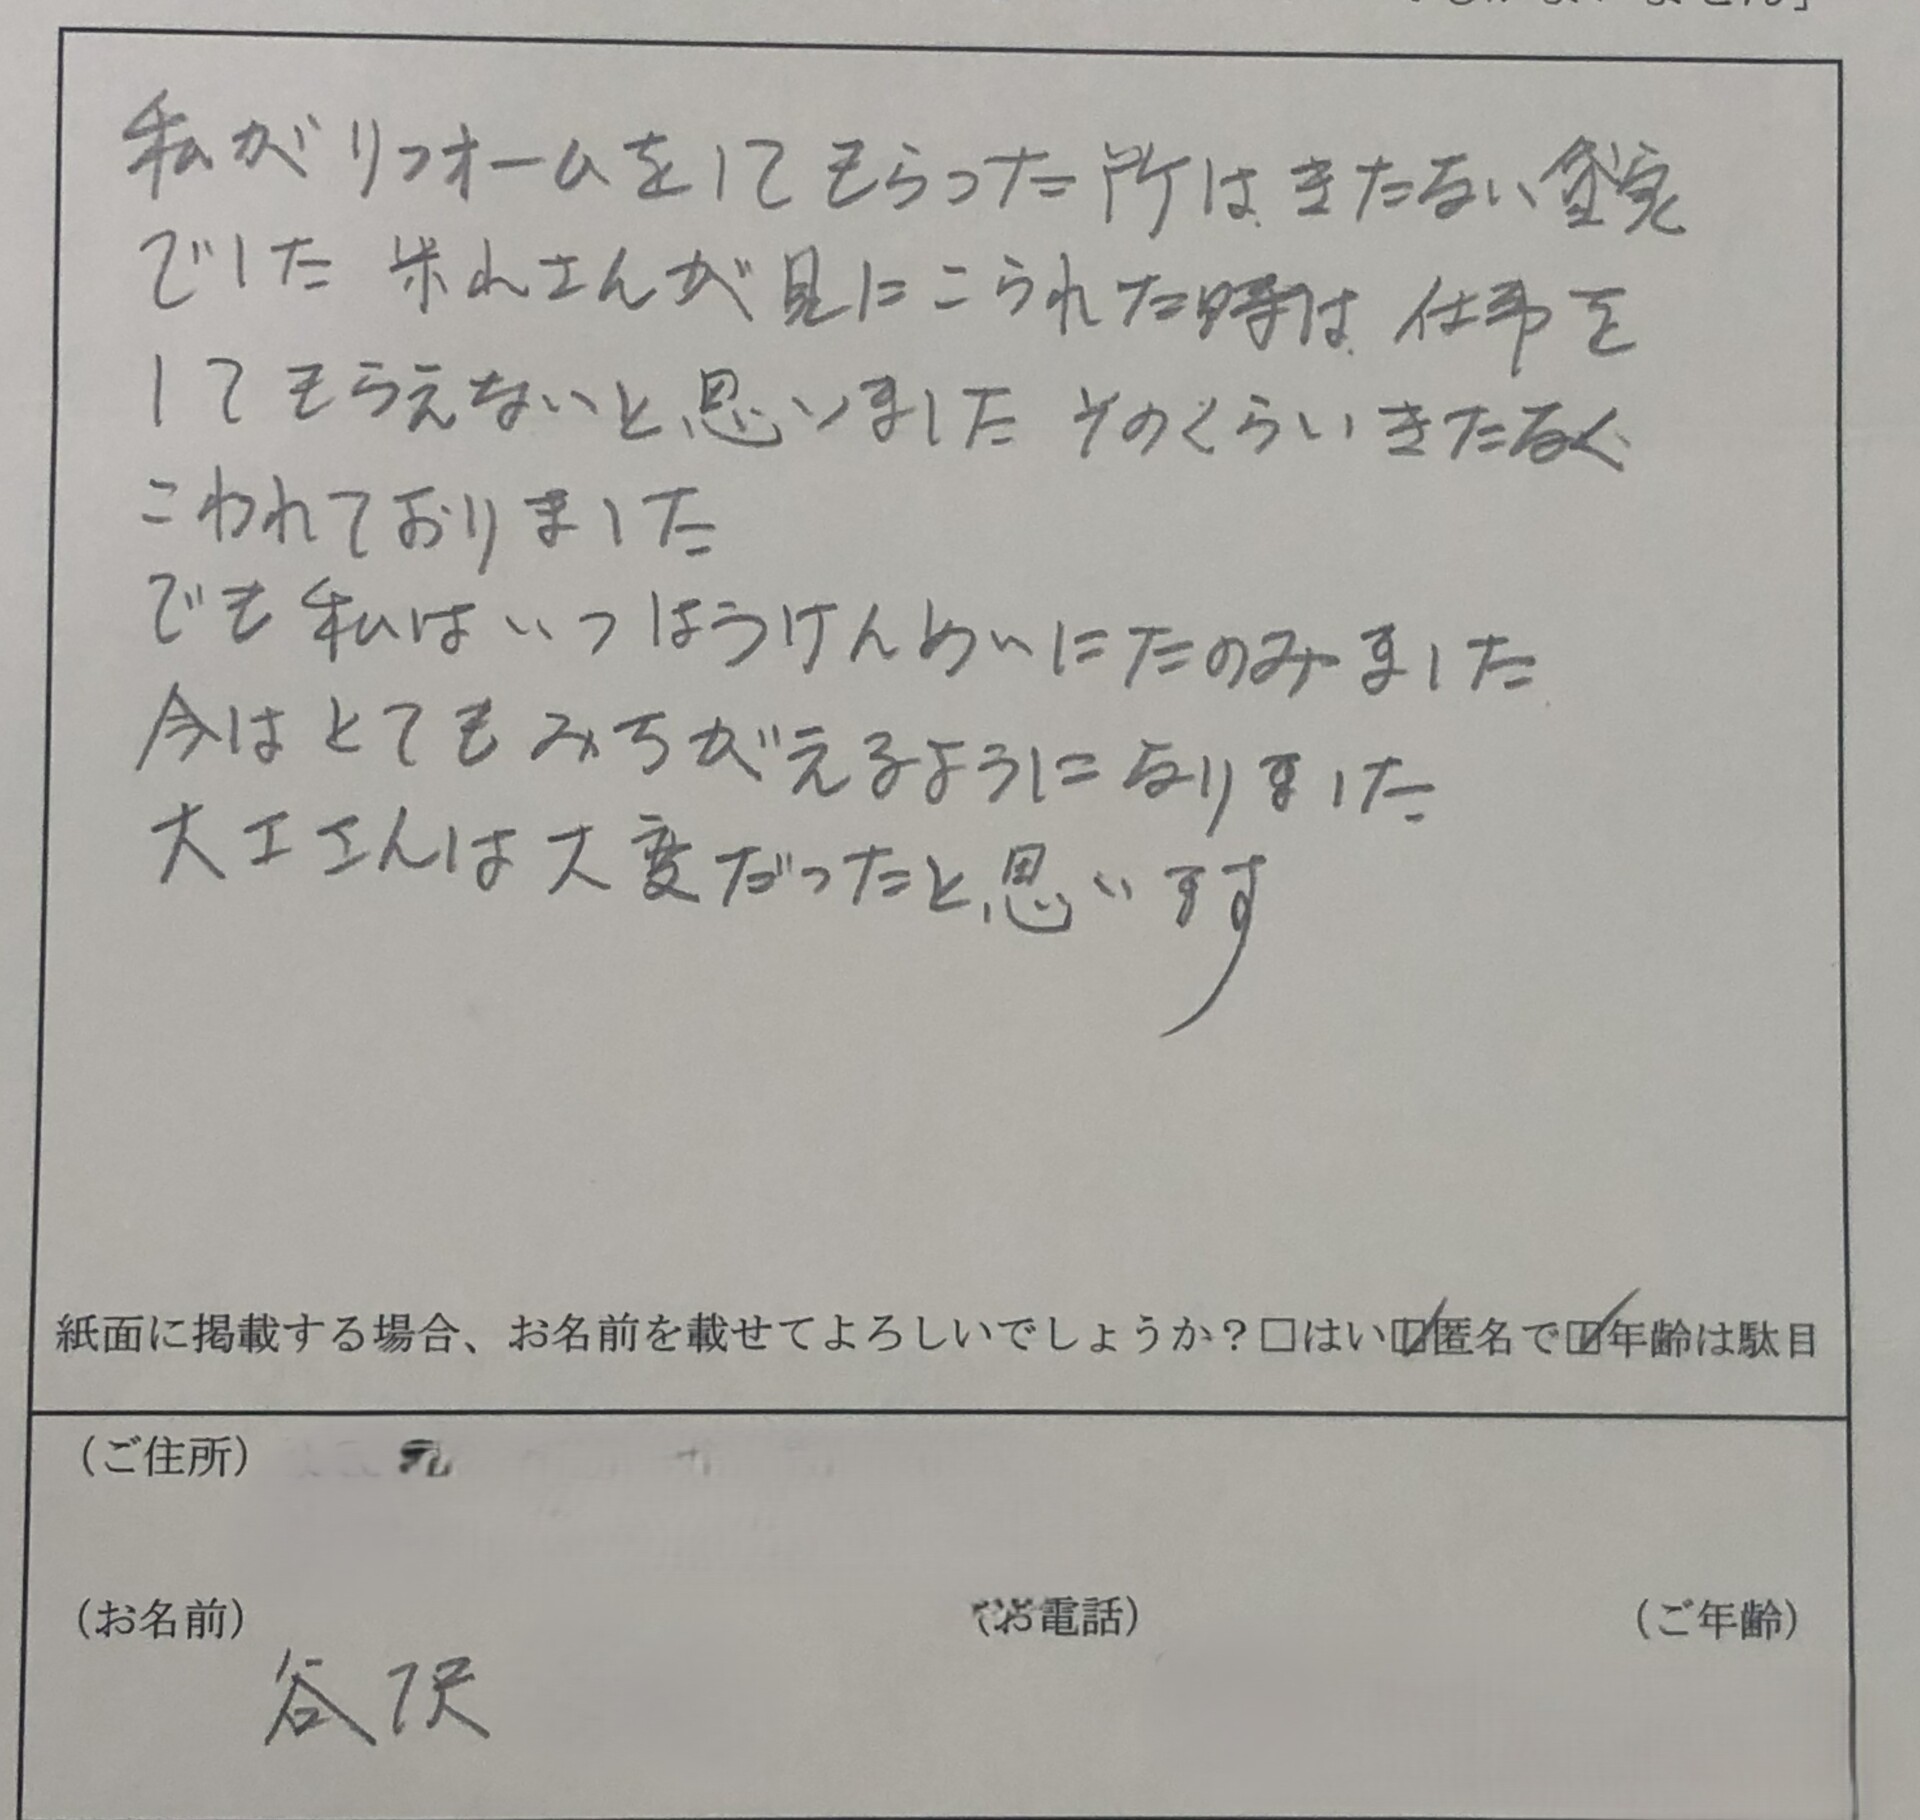 私がリフォームをしてもらった所はきたない
でした 米れさんが見にこられた時は 仕事を
してもらえないと思いました そのくらいきたなく
こわれておりました
でも私はいっぱうけんめいにたのみました
今はとてもみちがえるようになりました
大工さんは大変だったと思います
紙面に掲載する場合、お名前を載せてよろしいでしょうか？□はい☑匿名で☑年齢は駄目
(ご住所)
(お名前) (お電話) (ご年齢)
谷沢